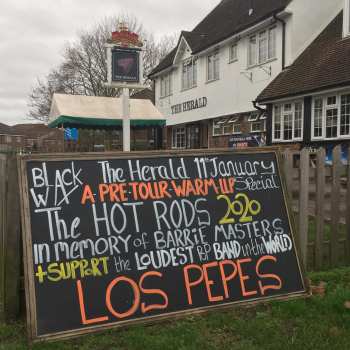 THE HERALD
THE HERALD
BLACK WAX
The Herald 11th January
A PRE-TOUR-WARM-UP Special
The HOT RODS 2020
IN MEMORY OF BARRIE MASTERS
+ SUPPORT the LOUDEST POP BAND in the WORLD
LOS PEPES